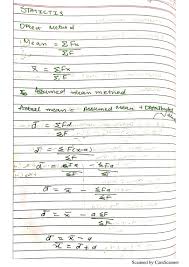 STATICTIS
Direct Method
Mean = ΣFx / ΣF
x̄ = ΣFx / ΣF
Assumed mean method
Actual mean = Assumed Mean +
d̄ = ΣFd / ΣF
d̄ = ΣF(x-a) / ΣF
d̄ = ΣFx / ΣF - ΣFa / ΣF
d̄ = x̄ - ΣFa / ΣF
d̄ = x̄ - aΣF / ΣF
d̄ = x̄ - a
x̄ = d̄ + a
Scanned by CamScanner